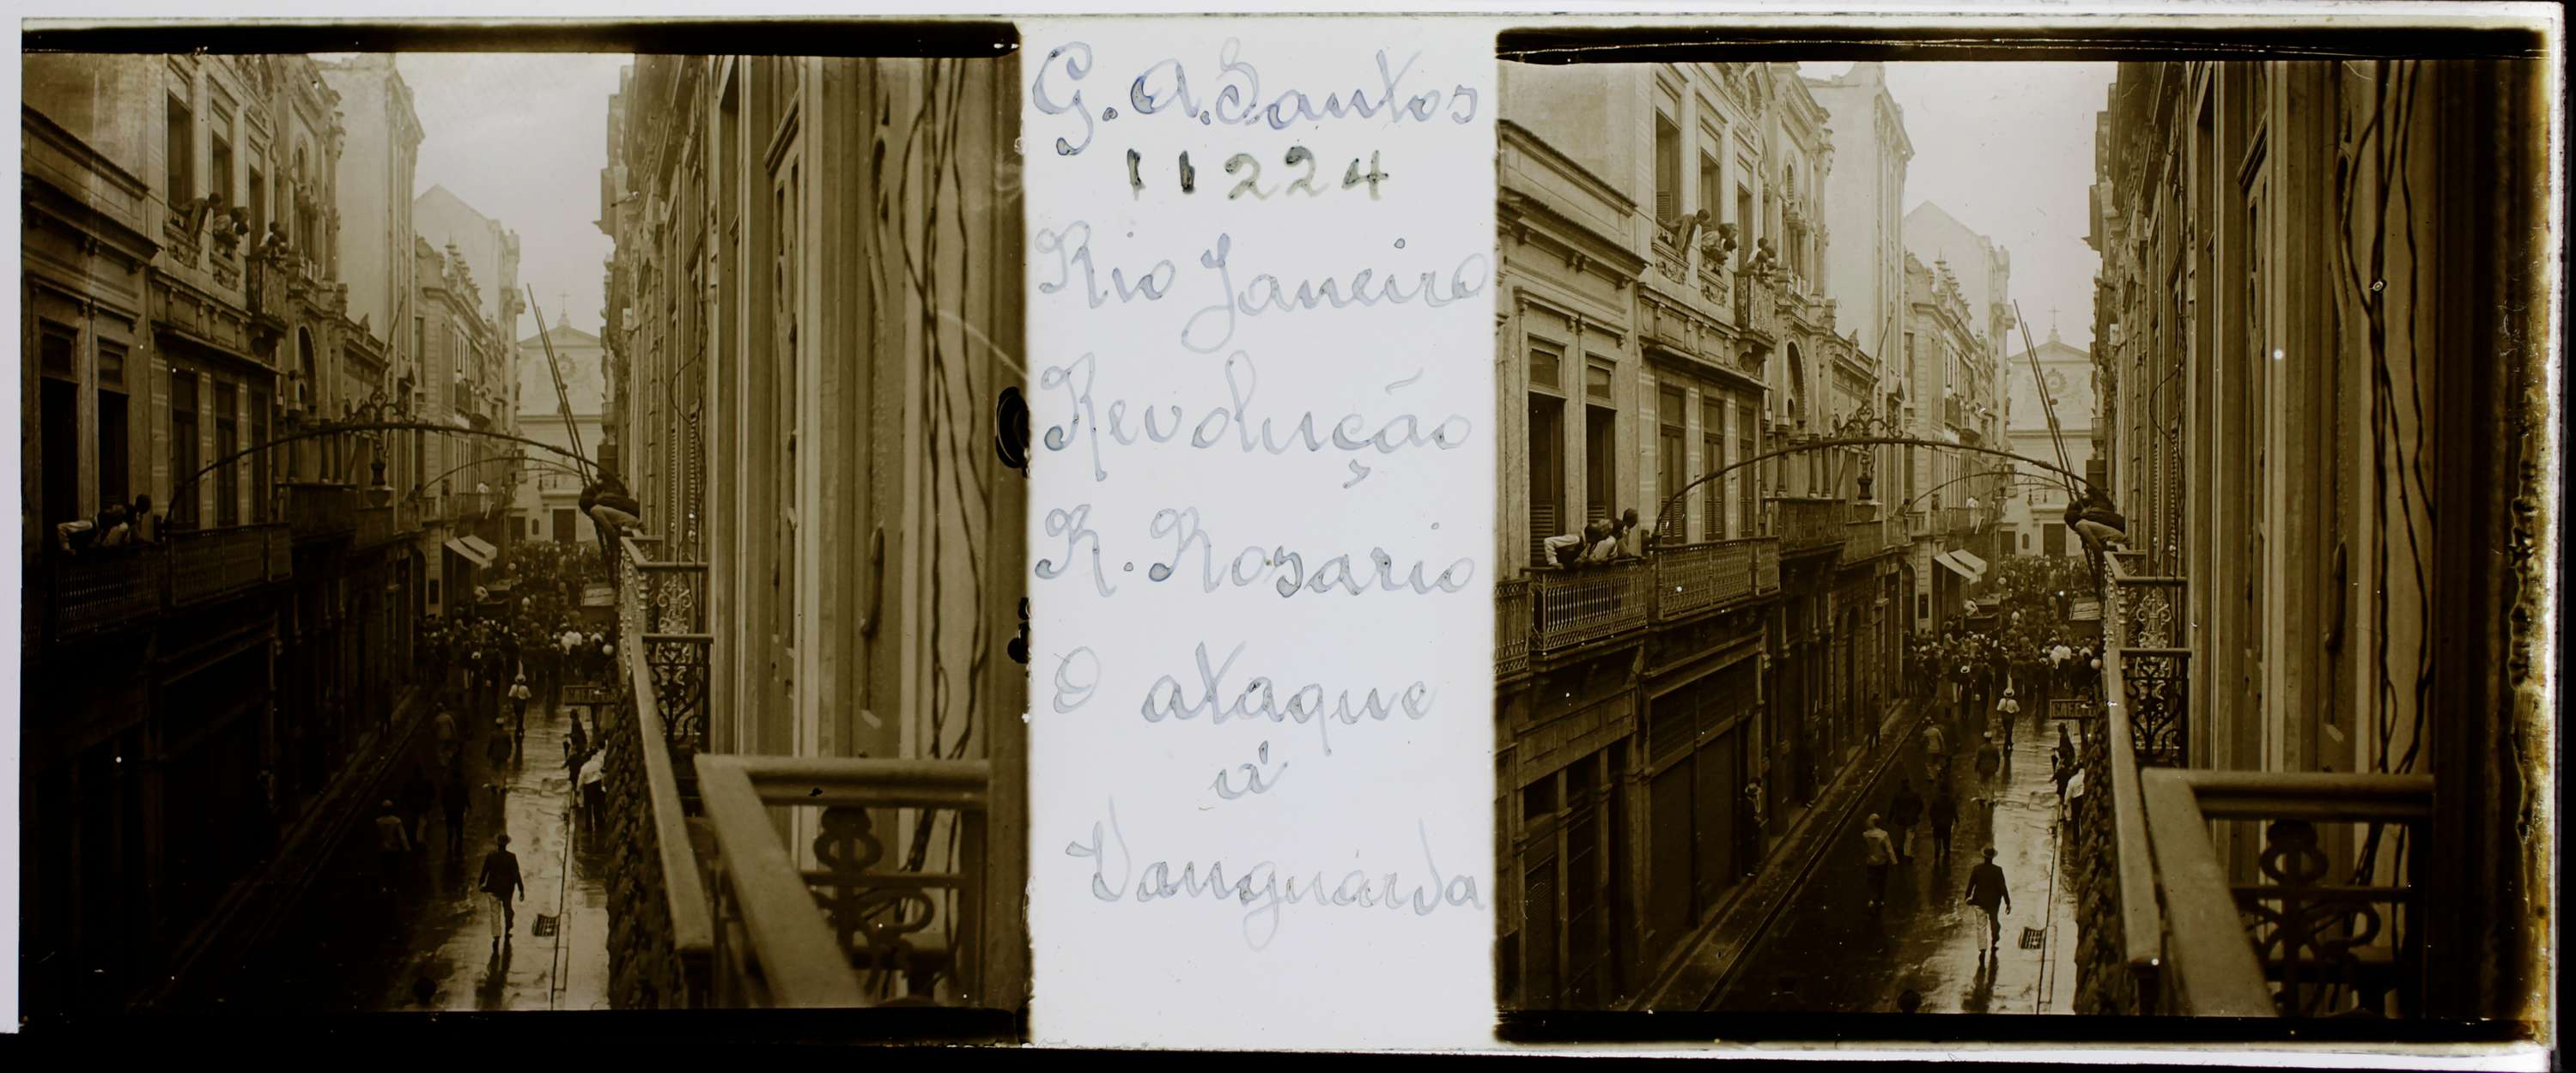 G. A. Santos
11224
Rio Janeiro
Revolução
R. Rosario
O ataque
á
Vanguarda